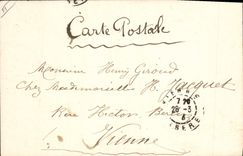 Carte Postale
Monsieur Henry Giroud
Chez Mademoiselle H. Jacquet
Rue Hector Berlioz
Vienne
7 30
28-3
ISERE